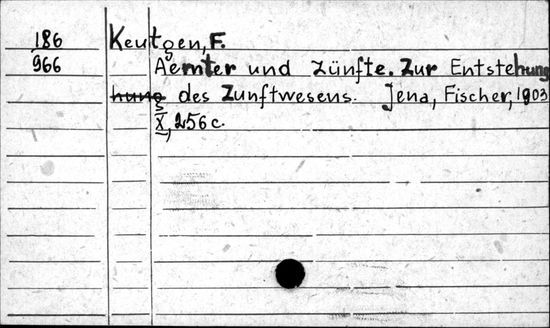 186 Keutgen, F.
966 Aemter und Zünfte. Zur Entstehung
hung des Zunftwesens. Jena, Fischer, 1903
X, 256 c.